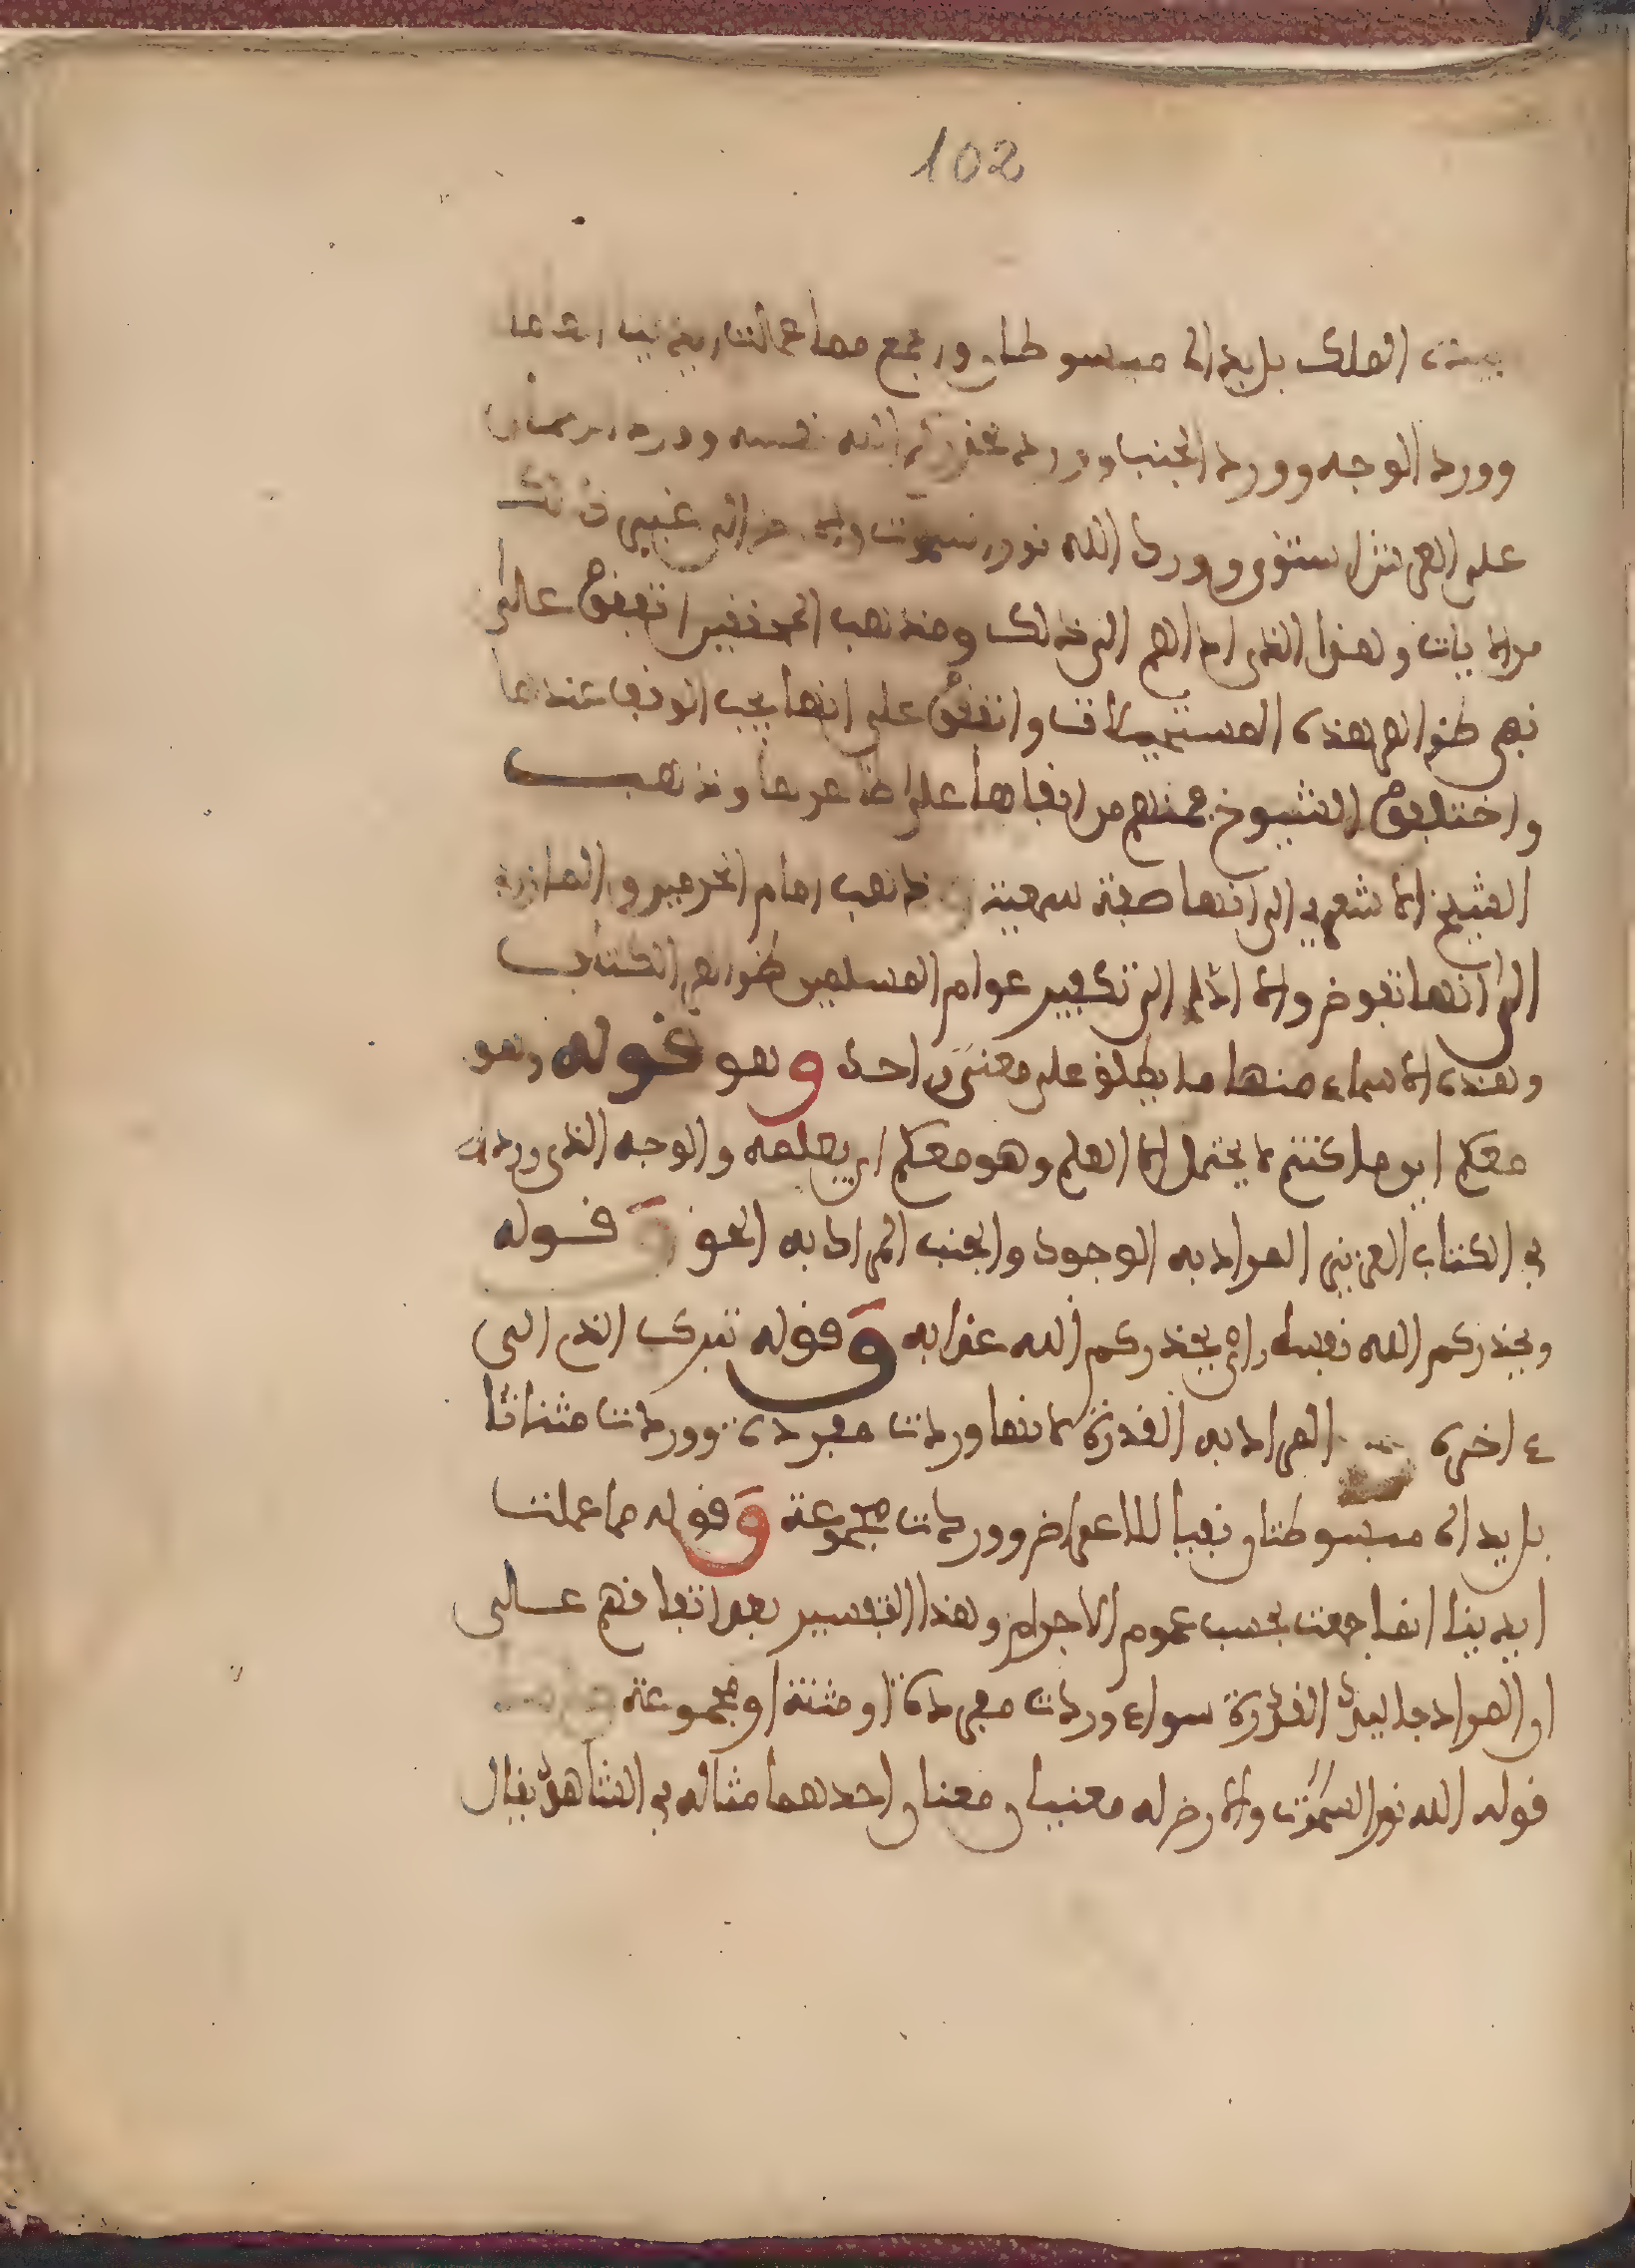 102
بيده الملك بل يداه مبسوطتان وبجمع مما عملت ايدينا انعاما
وورد الوجه وورد الجنب وورد يحذركم الله نفسه وورد الرحمان
على العرش استوى وورد الله نور السموات والارض الى غير ذلك
من الايات وهذا الذي اداهم الى ذلك ومذهب المحققين اتفقوا على
نفي ظواهر هذه المستحيلات واتفقوا على انها يجب الوقف عندها
واختلفوا الشيوخ فمنهم من ابقاها على ظاهرها وذهب
الشيخ الاشعري الى انها صفة سمعية ذهب امام الحرمين والمازري
الى انها تفوض والا ادى الى تكفير عوام المسلمين ظواهر الكتاب
وهذه الاسماء منها ما يطلق على معنى واحد وهو قوله وهو
معكم اين ما كنتم لا يحتمل الا العلم وهو معكم اي يعلمه والوجه الذي وردت
في الكتاب العزيز المراد به الوجود والجنب المراد به الحق وقوله
ويحذركم الله نفسه اي يحذركم الله عذابه وقوله تبرك الذي الى
ء اخره المراد به القدرة لانها وردت مفردة ووردت مثناتا
بل يداه مبسوطتان نفيا للاعراض ووردت مجموعة وقوله مما عملت
ايدينا انما جمعت بحسب عموم الاجرام وهذا التفسير بعد اتفاقهم على
ان المراد باليد القدرة سواء وردت مفردة او مثنة او مجموعة
قوله الله نور السموات والارض له معنيان معنا واحدهما مثاله في الشاهد يقال